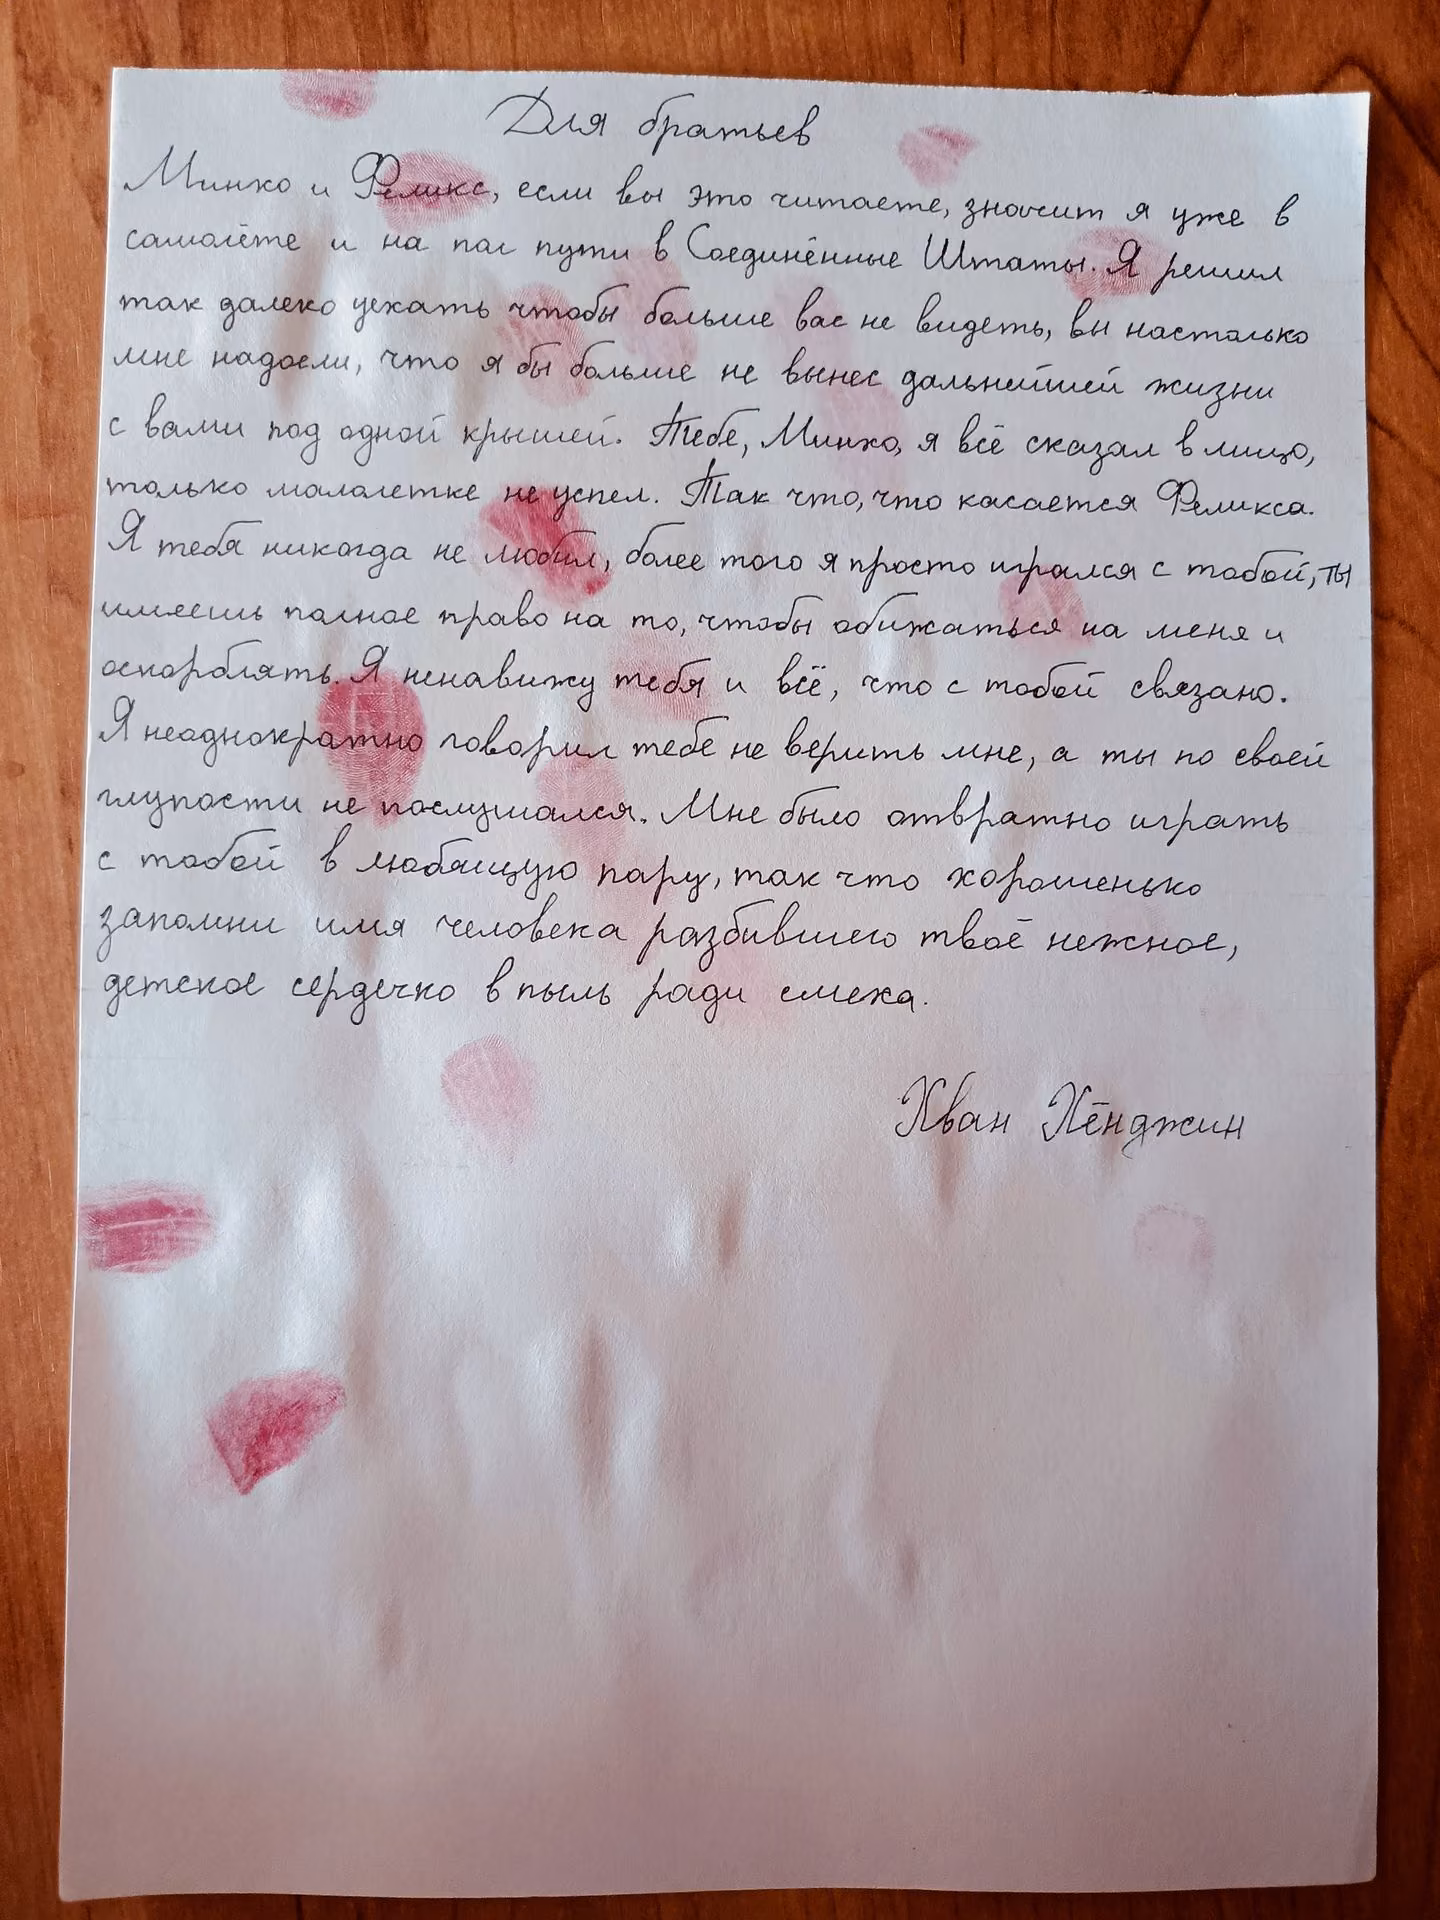 Для братьев
Минхо и Феликс, если вы это читаете, значит я уже в
самолёте и на пол пути в Соединённые Штаты. Я решил
так далеко уехать чтобы больше вас не видеть, вы настолько
мне надоели, что я бы больше не вынес дальнейшей жизни
с вами под одной крышей. Тебе, Минхо, я всё сказал в лицо,
только малолетке не успел. Так что, что касается Феликса.
Я тебя никогда не любил, более того я просто игрался с тобой, ты
имеешь полное право на то, чтобы обижаться на меня и
оскорблять. Я ненавижу тебя и всё, что с тобой связано.
Я неоднократно говорил тебе не верить мне, а ты по своей
глупости не послушался. Мне было отвратно играть
с тобой в любящую пару, так что хорошенько
запомни имя человека разбившего твоё нежное,
детское сердечко в пыль ради смеха.
Хван Хёнджин